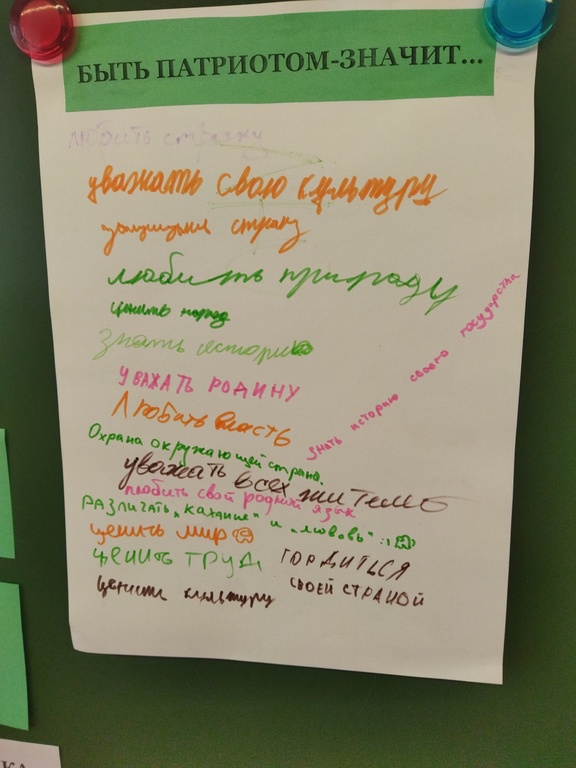 БЫТЬ ПАТРИОТОМ-ЗНАЧИТ...
любить страну
уважать свою культуру
защищать страну
любить природу
ценить народ
знать историю
знать историю своего государства
УВАЖАТЬ РОДИНУ
Любить власть
Охрана окружающей страна.
уважать всех жителей
любить свой родной язык
РАЗЛИЧАТЬ „КАХАННЕ" и „любовь" :)
ценить мир
ценить труд
ГОРДИТЬСЯ
СВОЕЙ СТРАНОЙ
ценить культуру
КА